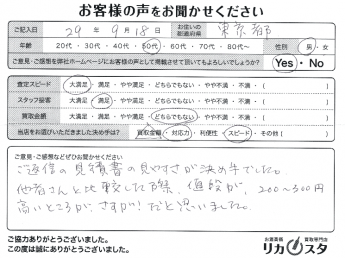 お客様の声をお聞かせください
ご記入日 29年 9月18日 お住いの都道府県 東京都
年齢 20代・30代・40代・50代・60代・70代・80代~ 性別 男・女
ご意見・ご感想を弊社ホームページにお客様の声として掲載させて頂いてもよろしいでしょうか? Yes・No
査定スピード 大満足・満足・やや満足・どちらでもない・やや不満・不満・( )
スタッフ接客 大満足・満足・やや満足・どちらでもない・やや不満・不満・( )
買取金額 大満足・満足・やや満足・どちらでもない・やや不満・不満・( )
当店をお選びいただきました決め手は? 買取金額・対応力・利便性・スピード・その他( )
ご意見・ご感想などぜひお聞かせください
ご返信の見積書の見やすさが決め手でした。
他者さんと比較した際、値段が、200~300円
高いところが、さすが!だと思いました。
ご協力ありがとうございました。
この度は誠にありがとうございました。
お酒買取 買取専門店
リカスタ